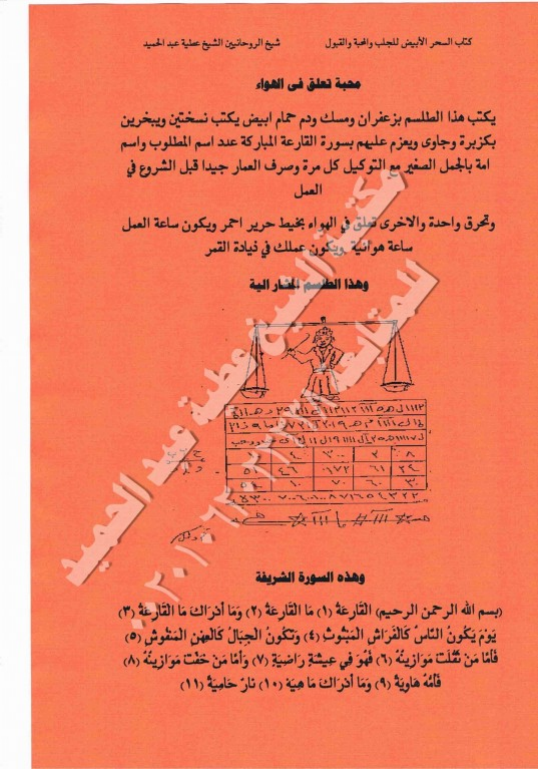 كتاب السحر الأبيض للجلب والمحبة والقبول شيخ الروحانيين الشيخ عطية عبد الحميد
محبة تعلق فى الهواء
يكتب هذا الطلسم بزعفران ومسك ودم حمام ابيض يكتب نسختين ويبخرين
بكزبرة وجاوى ويعزم عليهم بسورة القارعة المباركة عدد اسم المطلوب واسم
امة بالجمل الصغير مع التوكيل كل مرة وصرف العمار جيدا قبل الشروع في
العمل
وتحرق واحدة والاخرى تعلق في الهواء بخيط حرير احمر ويكون ساعة العمل
ساعة هوائية ويكون عملك في ذيادة القمر
وهذا الطلسم المشار الية
٨ ٢ ٣٠٠
٢٤ ٦١ ١٧٢ ٤٦
٣٠ ٦٠ ٧٠ ١٠
وهذه السورة الشريفة
(بسم الله الرحمن الرحيم) القَارِعَةُ (١) مَا القَارِعَةُ (٢) وَمَا أَدْرَاكَ مَا القَارِعَةُ (٣)
يَوْمَ يَكُونُ النَّاسُ كَالفَرَاشِ المَبْثُوثِ (٤) وَتَكُونُ الجِبَالُ كَالعِهْنِ المَنْفُوشِ (٥)
فَأَمَّا مَنْ ثَقُلَت مَوَازِينُهُ (٦) فَهُوَ فِي عِيشَةٍ رَاضِيَةٍ (٧) وَأَمَّا مَنْ خَفَّت مَوَازِينُهُ (٨)
فَأُمُّهُ هَاوِيَةٌ (٩) وَمَا أَدْرَاكَ مَا هِيَه (١٠) نَارٌ حَامِيَةٌ (١١)
مكتبة الشيخ عطية عبد الحميد
للمتابعة